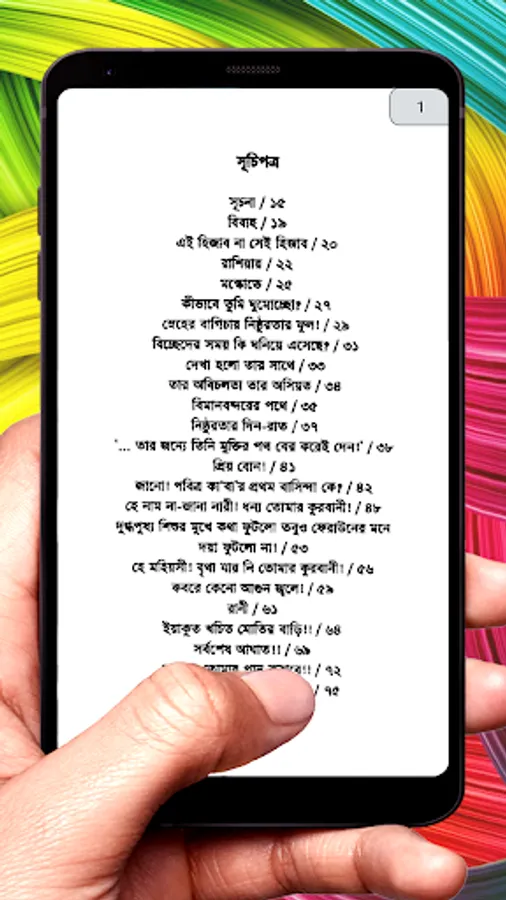 1
সূচিপত্র
সূচনা / ১৫
বিবাহ / ১৯
এই হিজাব না সেই হিজাব / ২০
রাশিয়ায় / ২২
মস্কোতে / ২৫
কীভাবে তুমি ঘুমোচ্ছো? / ২৭
স্নেহের বাগিচায় নিষ্ঠুরতার মূল! / ২৯
বিচ্ছেদের সময় কি ঘনিয়ে এসেছে? / ৩১
দেখা হলো তার সাথে / ৩৩
তার অবিচলতা তার অসিয়ত / ৩৪
বিমানবন্দরের পথে / ৩৫
নিষ্ঠুরতার দিন-রাত / ৩৭
'... তার জন্যে তিনি মুক্তির পথ বের করেই দেন!' / ৩৮
প্রিয় বোন! / ৪১
জানো! পবিত্র কা'বা'র প্রথম বাসিন্দা কে? / ৪২
হে নাম না-জানা নারী! ধন্য তোমার কুরবানী! / ৪৮
দুগ্ধপুষ্য শিশুর মুখে কথা ফুটলো তবুও ফেরাউনের মনে
দয়া ফুটলো না! / ৫৩
হে মহিয়সী! বৃথা যায় নি তোমার কুরবানী! / ৫৬
কবরে কেনো আগুন জ্বলে! / ৫৯
রানী / ৬১
ইয়াকূত খচিত মোতির বাড়ি!! / ৬৪
সর্বশেষ আঘাত!! / ৬৯
/ ৭২
/ ৭৫